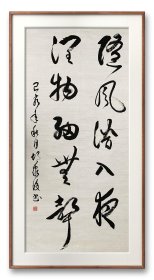 随风潜入夜
润物细无声
己亥年秋月
书